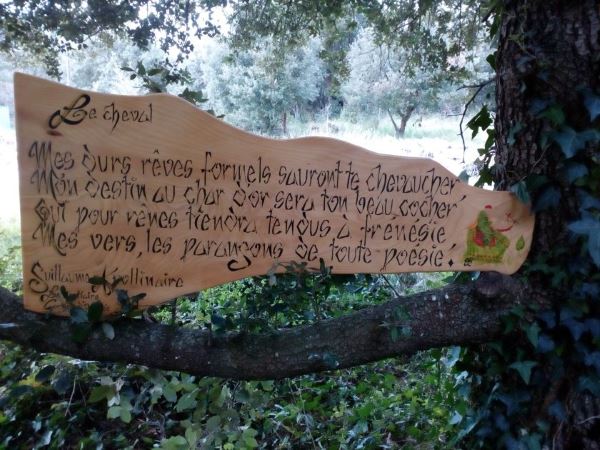 Le cheval
Mes durs rêves formels sauront te chevaucher,
Mon destin au char d'or sera ton beau cocher
Qui pour rênes tiendra tendus à frénésie
Mes vers, les parangons de toute poésie.
Guillaume Apollinaire